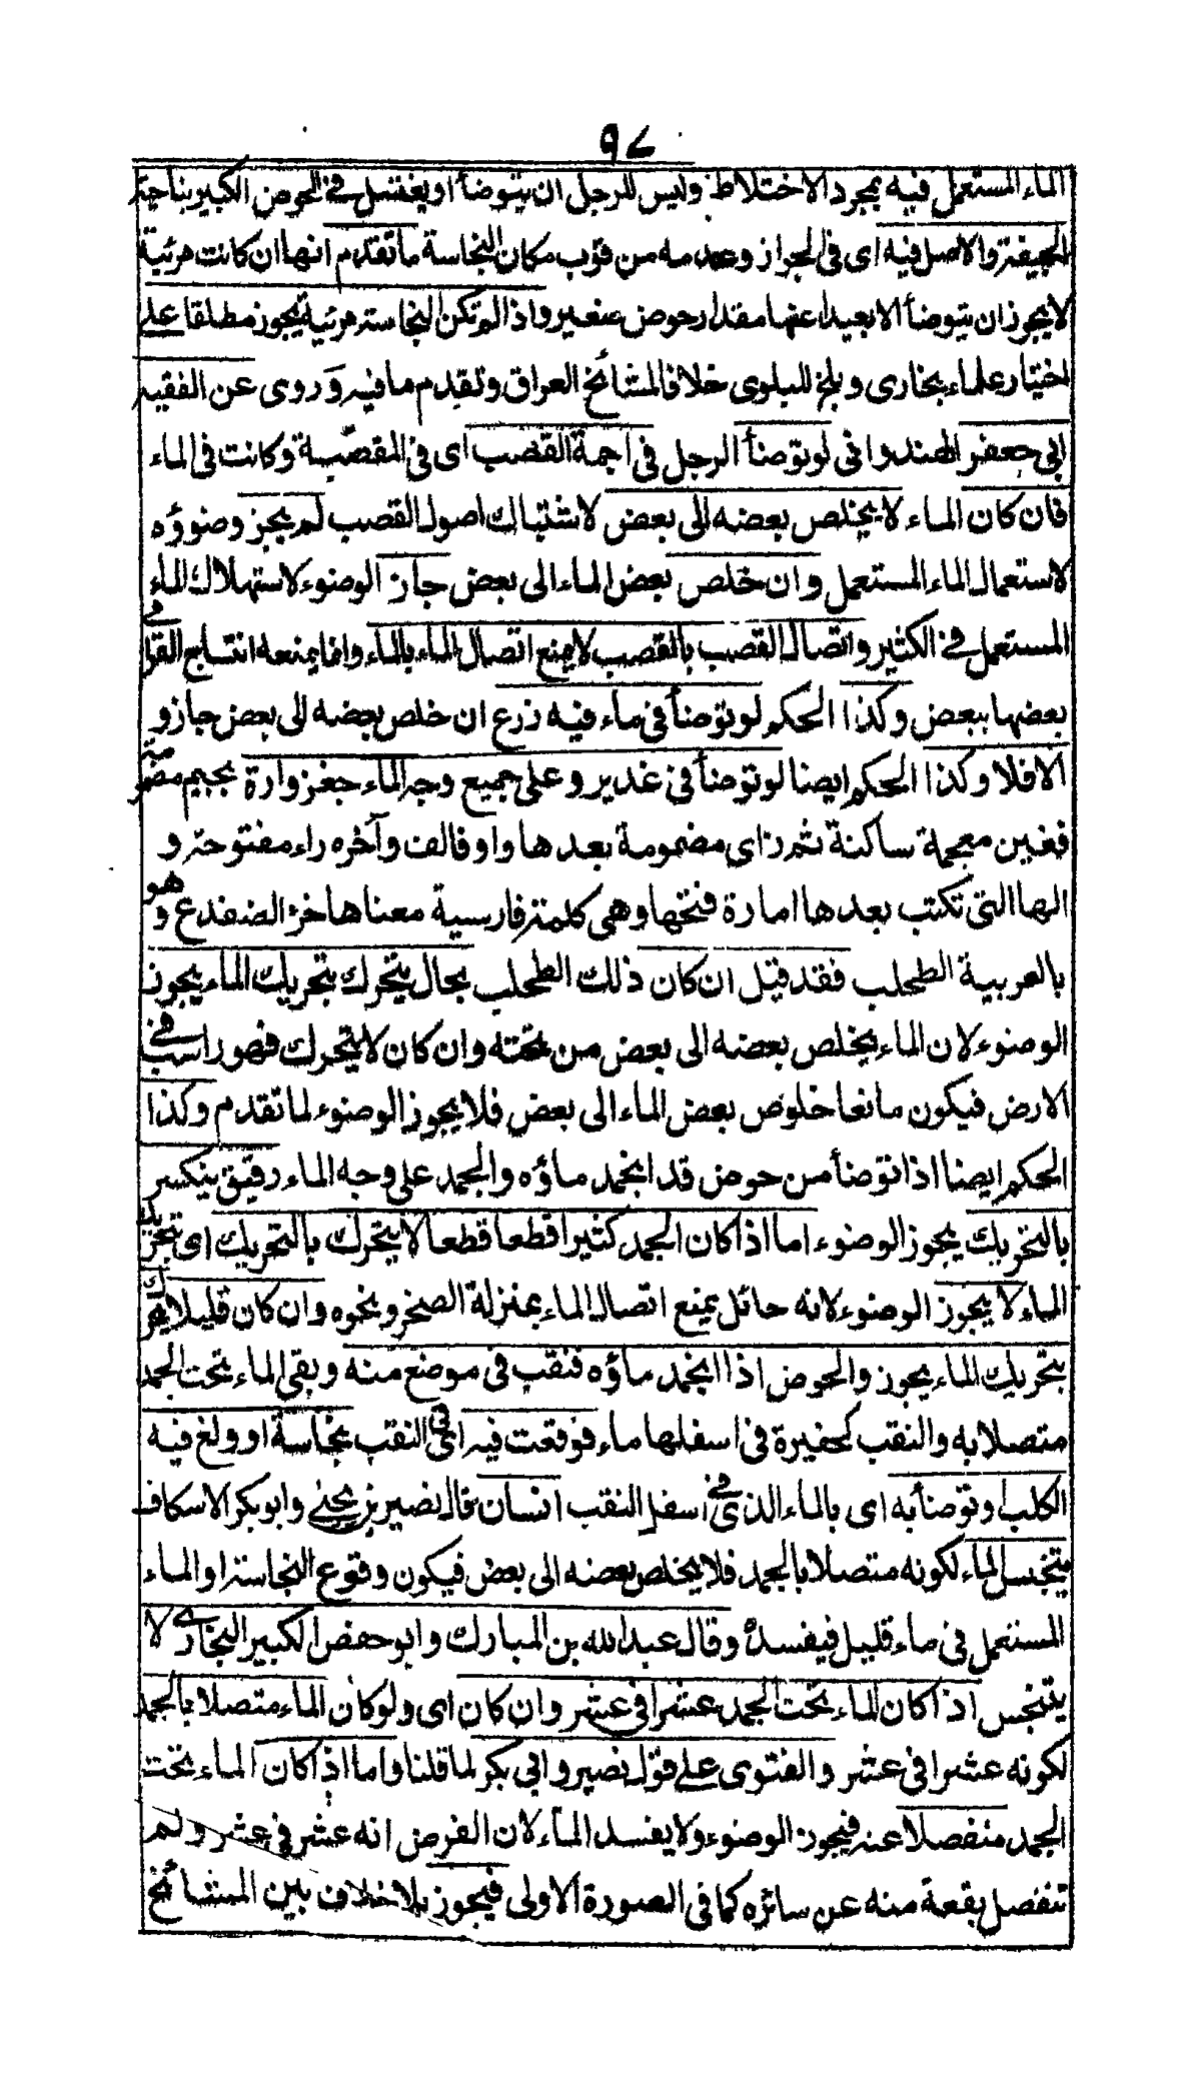 ٩٧
الماء المستعمل فيه بمجرد الاختلاط وليس للرجل ان يتوضأ او يغتسل في الحوض الكبير بناحية
الجيفة والاصل فيه اى فى الجواز وعدمه من قرب مكان النجاسة ما تقدم انها ان كانت مرئية
لا يجوز ان يتوضأ الا بعيدا عنها مقدار حوض صغير واذا لم تكن النجاسة مرئية يجوز مطلقا على
اختيار علماء بخارى وبلخ للبلوى خلافا لمشائخ العراق وتقدم ما فيه وروى عن الفقيه
ابى جعفر الهندوانى لو توضأ الرجل فى اجمة القصب اى فى المقصبة وكانت فى الماء
فان كان الماء لا يخلص بعضه الى بعض لاشتباك اصول القصب لم يجز وضوؤه
لاستعمال الماء المستعمل وان خلص بعض الماء الى بعض جاز الوضوء لاستهلاك الماء
المستعمل في الكثير واتصال القصب بالقصب لا يمنع اتصال الماء بالماء وانما يمنعه انتساج القرا في
بعضها ببعض وكذا الحكم لو توضأ فى ماء فيه زرع ان خلص بعضه الى بعض جاز و
الا فلا وكذا الحكم ايضا لو توضأ فى غدير وعلى جميع وجه الماء جغزوارة بجيم مضمومة
فغين معجمة ساكنة ثم زاى مضمومة بعدها واو فالف وآخره راء مفتوحة و
الها التى تكتب بعدها امارة فتحها وهى كلمة فارسية معناها خرء الضفدع وهو
بالعربية الطحلب فقد قيل ان كان ذلك الطحلب بحال يتحرك بتحريك الماء يجوز
الوضوء لان الماء يخلص بعضه الى بعض من تحته وان كان لا يتحرك فهو راسب في
الارض فيكون مانعا خلوص بعض الماء الى بعض فلا يجوز الوضوء لما تقدم وكذا
الحكم ايضا اذا توضأ من حوض قد انجمد ماؤه والجمد على وجه الماء رقيق ينكسر
بالتحريك يجوز الوضوء اما اذا كان الجمد كثيرا قطعا قطعا لا يتحرك بالتحريك اى بتحريك
الماء لا يجوز الوضوء لانه حائل يمنع اتصال الماء بمنزلة الصخر ونحوه وان كان قليلا يتحرك
بتحريك الماء يجوز والحوض اذا انجمد ماؤه فنقب فى موضع منه وبقى الماء تحت الجمد
متصلا به والنقب كحفيرة فى اسفلها ماء فوقعت فيه اى فى النقب نجاسة او ولغ فيه
الكلب او توضأ به اى بالماء الذى في اسفل النقب انسان قال نصير بن يحيى وابو بكر الاسكاف
يتنجس الماء لكونه متصلا بالجمد فلا يخلص بعضه الى بعض فيكون وقوع النجاسة او الماء
المستعمل فى ماء قليل فيفسده وقال عبد الله بن المبارك وابو حفص الكبير البخارى لا
يتنجس اذا كان الماء تحت الجمد عشرا فى عشر وان كان اى ولو كان الماء متصلا بالجمد
لكونه عشرا فى عشر والفتوى على قول نصير وابى بكر لما قلنا واما اذا كان الماء تحت
الجمد منفصلا عنه فيجوز الوضوء ولا يفسد الماء لان الفرض انه عشر فى عشر ولم
تنفصل بقعة منه عن سائره كما فى الصورة الاولى فيجوز بلا خلاف بين المشائخ